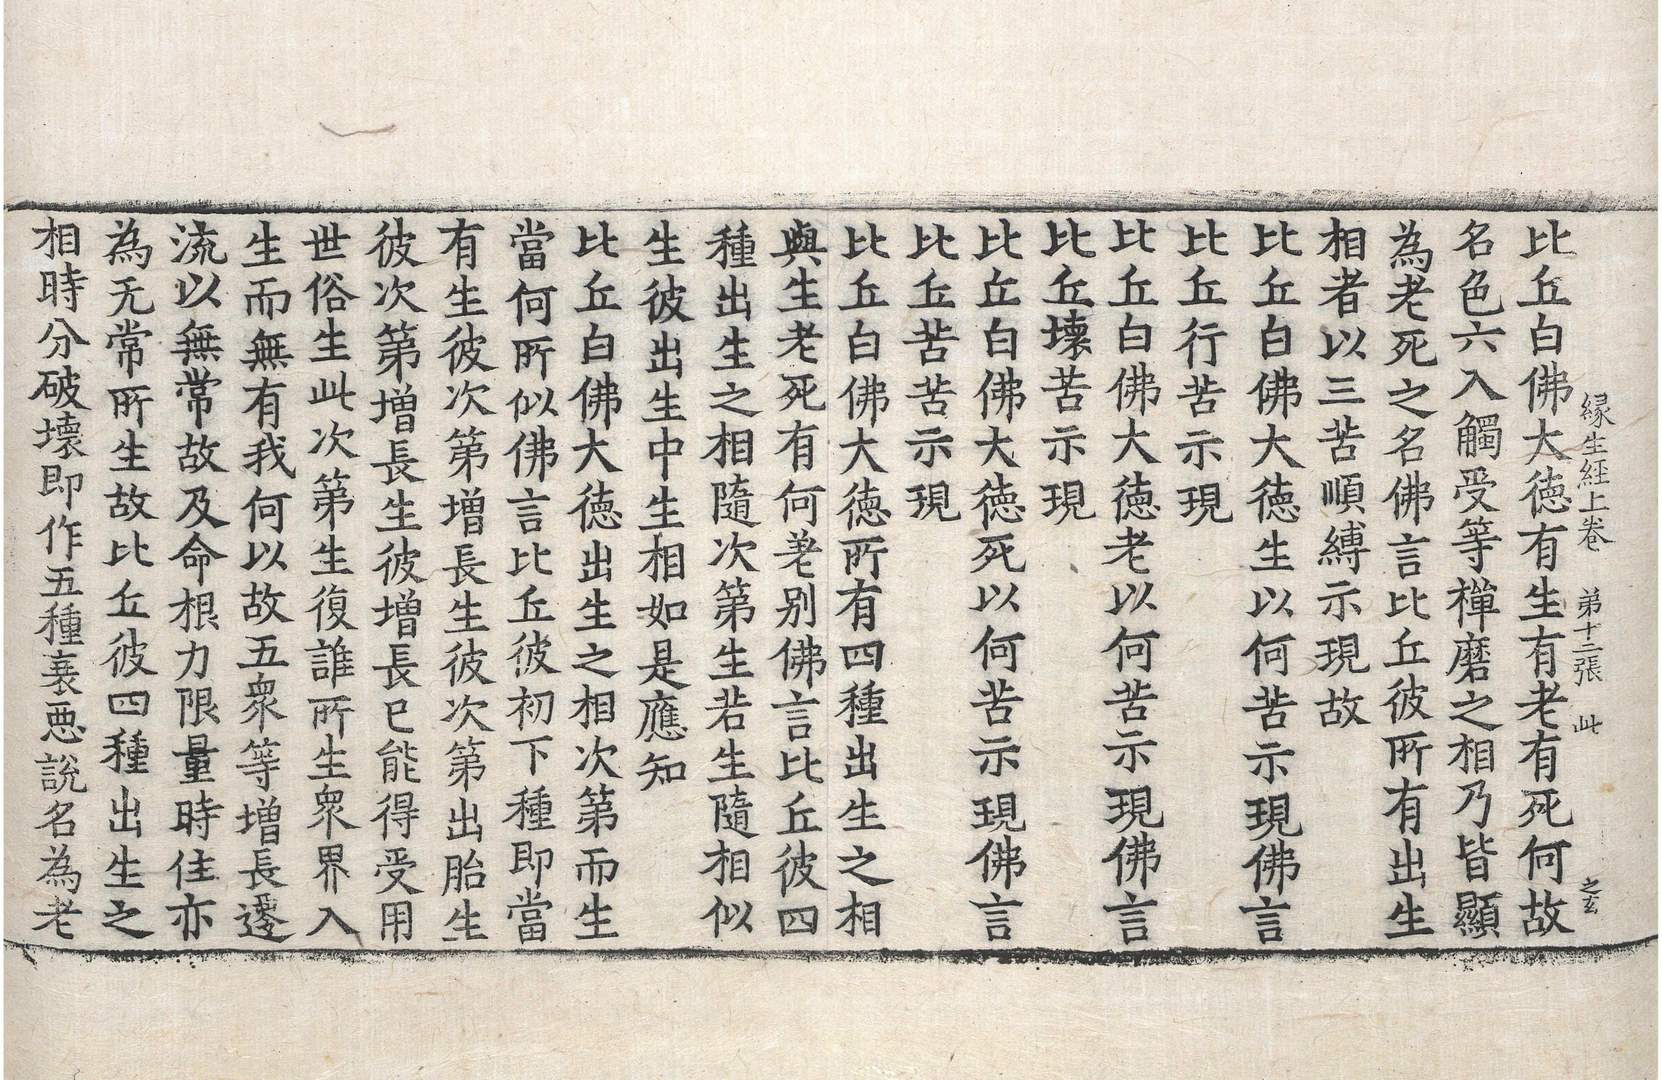 緣生經上卷 第十二張 此 之玄
比丘白佛大德有生有老有死何故
名色六入觸受等楎磨之相乃皆顯
為老死之名佛言比丘彼所有出生
相者以三苦順縛示現故
比丘白佛大德生以何苦示現佛言
比丘行苦示現
比丘白佛大德老以何苦示現佛言
比丘壞苦示現
比丘白佛大德死以何苦示現佛言
比丘苦苦示現
比丘白佛大德所有四種出生之相
與生老死有何差別佛言比丘彼四
種出生之相隨次第生若生隨相似
生彼出生中生相如是應知
比丘白佛大德出生之相次第而生
當何所似佛言比丘彼初下種即當
有生彼次第增長生彼次第出胎生
彼次第增長生彼增長已能得受用
世俗生此次第生復誰所生眾界入
生而無有我何以故五眾等增長遷
流以無常故及命根力限量時住亦
為无常所生故比丘彼四種出生之
相時分破壞即作五種衰惡說名為老